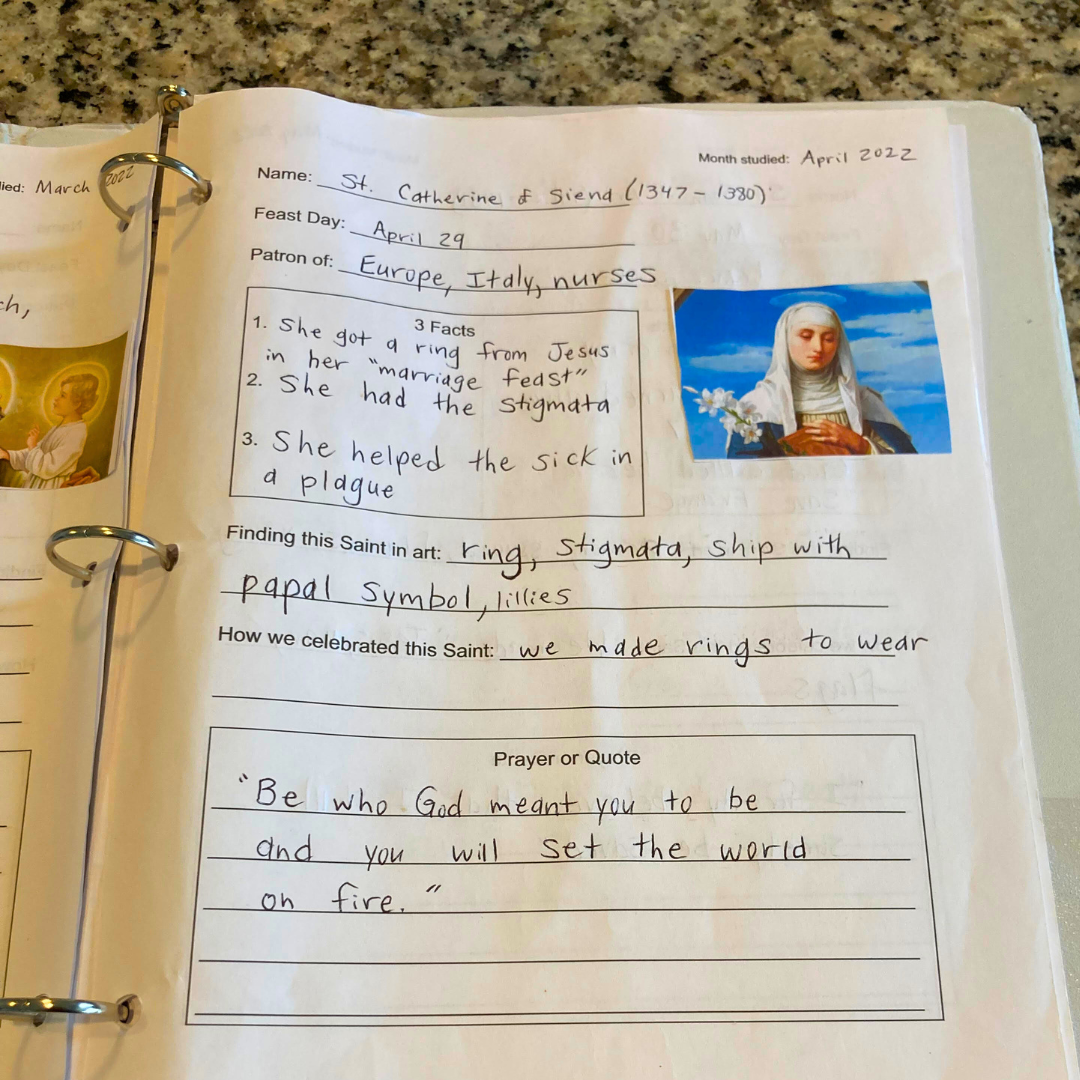 Month studied: April 2022
Name: St. Catherine of Siena (1347 - 1380)
Feast Day: April 29
Patron of: Europe, Italy, nurses
3 Facts
1. She got a ring from Jesus
in her "marriage feast"
2. She had the stigmata
3. She helped the sick in
a plague
Finding this Saint in art: ring, stigmata, ship with
papal symbol, lillies
How we celebrated this Saint: we made rings to wear
Prayer or Quote
"Be who God meant you to be
and you will set the world
on fire."
ied: March 2022
ch,